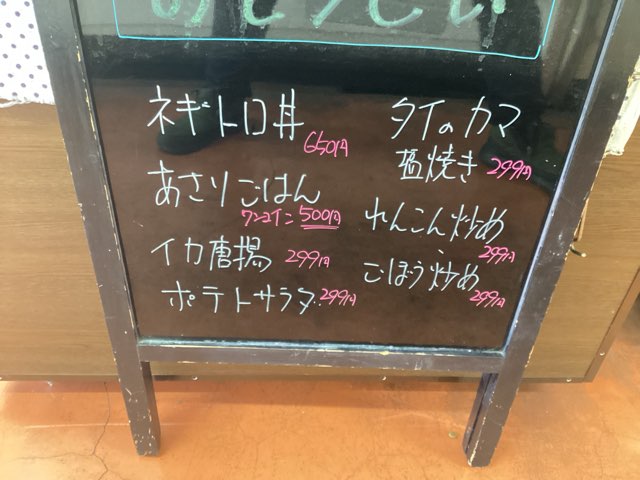 ネギトロ丼
650円
あさりごはん
ワンコイン 500円
イカ唐揚 299円
ポテトサラダ 299円
タイのカマ
塩焼き 299円
れんこん炒め
299円
ごぼう炒め
299円